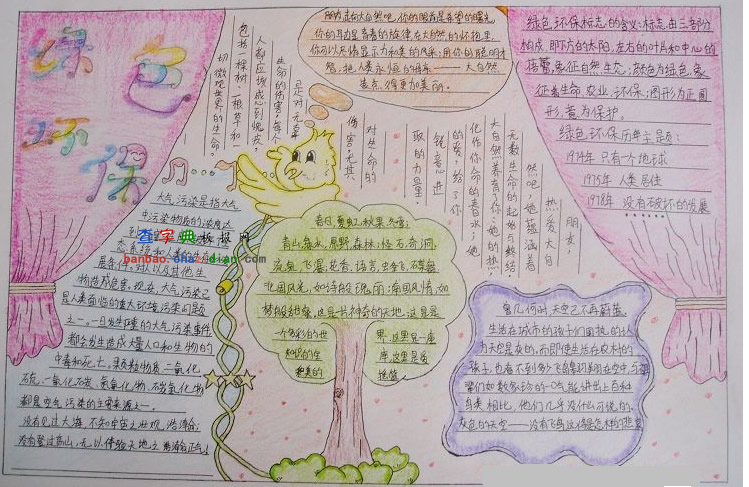 绿色
环保
朋友,走向大自然吧,你的眼前是希望的曙光,
你的耳边是青春的旋律,在大自然的怀抱里,
你可以尽情显示力和美的风采;用你的聪明才
智,把人类永恒的母亲——大自然
装点得更加美丽。
绿色环保标志的含义:标志由三部分
构成,即下方的太阳,左右的叶片和中心的
蓓蕾,象征自然生态;颜色为绿色,象
征着生命,农业,环保;图形为正圆
形,意为保护。
绿色环保历年主题:
1974年 只有一个地球
1975年 人类居住
1978年 没有破坏的发展
朋友,
热爱大自
然吧,她蕴涵着
无数生命的起始与终结,
大自然养育了你,她的热
化作你生命的春水,她
的爱,给了你
锐意进
取的力量。
对生命的
伤害,尤其
是对一无辜
生命的伤害,每个
人都应该感到愧疚,
包括一棵树,一根草和一
切微观世界的生命。
大气污染是指大气
中污染物质的浓度达
到
态系统和人类
展条件,对人以及其他生
物造成危害。现在,大气污染已
是人类面临的重大环境污染问题
之一。一旦发生严重的大气污染事件
都会发生造成大量人口和生物的
中毒和死亡。颗粒物质,二氧化
硫,一氧化碳,氮氧化物,碳氢化物
都是空气污染的主要来源之一。
没有见过大海,不知宇宙之壮观,浩瀚;
没有登过高山,无以体验天地之浩瀚正气
春日,夏虹,秋果,冬雪;
青山,海水,原野,森林,怪石,奇洞,
流泉,飞瀑,花香,语言,虫争飞,石
北国风光,如诗般瑰丽;南国风情,如
梦般缠绵,这是一片神奇的天地,这是
一个多彩的世界,这里是一座
知识的宝库,这里是爱
和美的摇篮
曾几何时,天空已不再蔚蓝。
生活在城市的孩子们固执的认
为天空是灰的,而即使生活在农村的
孩子,也看不到多少飞鸟掠过
们如数家珍的一口气能讲出上百种
鸟类相比,他们几乎没什么可说的。
灰色的天空——没有飞鸟这将是怎样的悲哀
查字典 板报网
banbao.chazidian.com